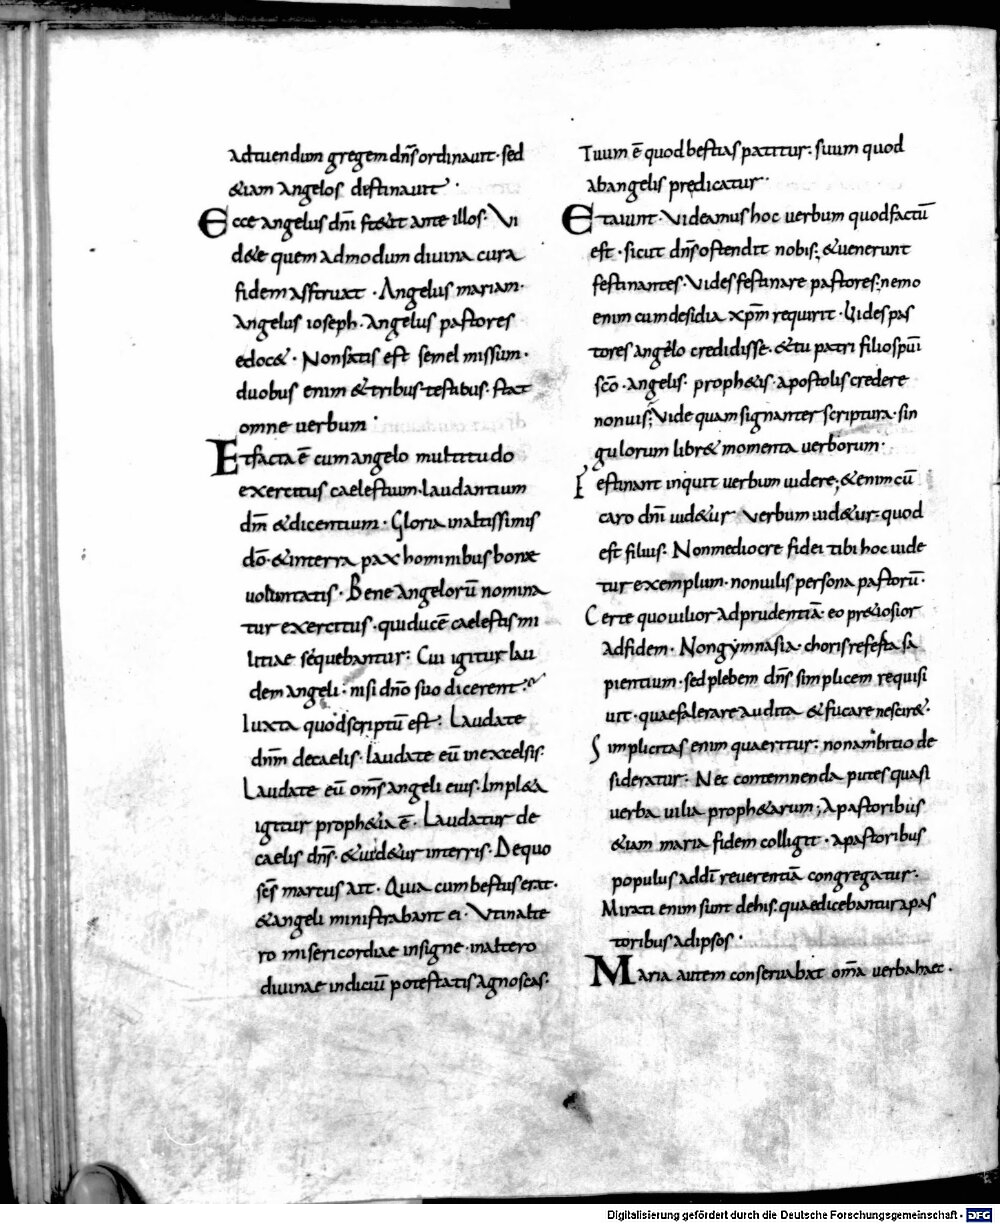 adtuendum gregem dn̄s ordinauit· sed
&iam angelos destinauit·
Ecce angelus dn̄i st&it ante illos· Vi
d&e quem admodum diuina cura
fidem asstruat· Angelus mariam·
Angelus ioseph· Angelus pastores
edoc&· Non satis est semel missum·
duobus enim &tribus testibus· stat
omne uerbum·
Et facta ē cum angelo multitudo
exercitus caelestium· laudantium
dm̄ &dicentium· Gloria inaltissimis
dō· &interra pax hominibus bonae
uoluntatis· Bene angelorū nomina
tur exercitus· qui ducē caelestis mi
litiae sequebantur: Cui igitur lau
dem angeli· nisi dn̄o suo dicerent·
Iuxta quod scriptū est: Laudate
dn̄m decaelis· laudate eū inexcelsis:
Laudate eū om̄s angeli eius: Impl&a
igitur proph&ia ē· Laudatur de
caelis dn̄s· &uid&ur interris· De quo
sc̄s marcus ait· Quia cum bestiis erat·
&angeli ministrabant ei· Vt inalte
ro misericordiae insigne· inaltero
diuinae indiciū potestatis agnoscas·
Tuum ē quod bestias patitur: suum quod
abangelis predicatur·
Et aiunt· Videamus hoc uerbum quod factū
est· sicut dn̄s ostendit nobis; &uenerunt
festinantes· Vides festinare pastores; nemo
enim cum desidia xp̄m requirit· Vides pas
tores angelo credidisse· &tu patri filio spūi
sc̄o· angelis· proph&is· apostolis credere
non uis; Vide quam signanter scriptura· sin
gulorum libr& momenta uerborum·
Festinant inquit uerbum uidere; &enim cū
caro dn̄i uid&ur uerbum uid&ur· quod
est filius· Non mediocre fidei tibi hoc uide
tur exemplum· non uilis persona pastorū·
Certe quo uilior ad prudentiā· eo pr&iosior
ad fidem· Non gymnasia· choris referta sa
pientium· sed plebem dn̄s simplicem requisi
uit· quae falerare audita &fucare nescir&·
Simplicitas enim quaeritur: non ambitio de
sideratur· Nec contemnenda putes quasi
uerba uilia proph&arum; A pastoribus
&iam maria fidem colligit· a pastoribus
populus addī reuerentiā congregatur·
Mirati enim sunt de his· quae dicebantur apas
toribus ad ipsos·
Maria autem conseruabat om̄a uerba haec·
Digitalisierung gefördert durch die Deutsche Forschungsgemeinschaft - DFG